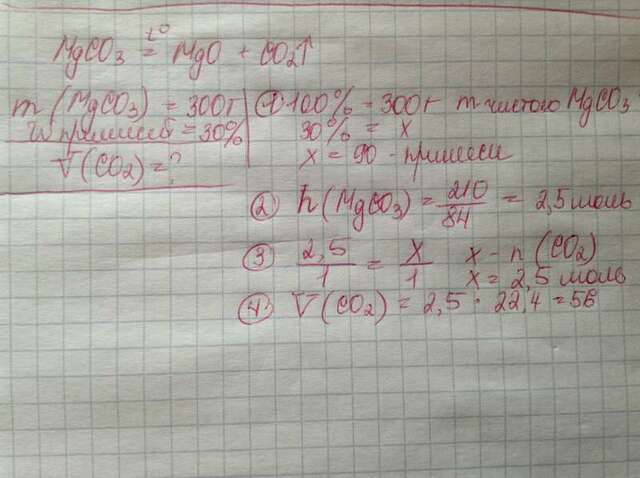 MgCO₃ =t° MgO + CO₂↑
m (MgCO₃) = 300г
W примесей = 30%
V (CO₂) = ?
① 100% = 300г m чистого MgCO₃
30% = x
x = 90 - примеси
② n (MgCO₃) = 210/84 = 2,5 моль
③ 2,5/1 = x/1 x - n (CO₂)
x = 2,5 моль
④ V (CO₂) = 2,5 · 22,4 = 56